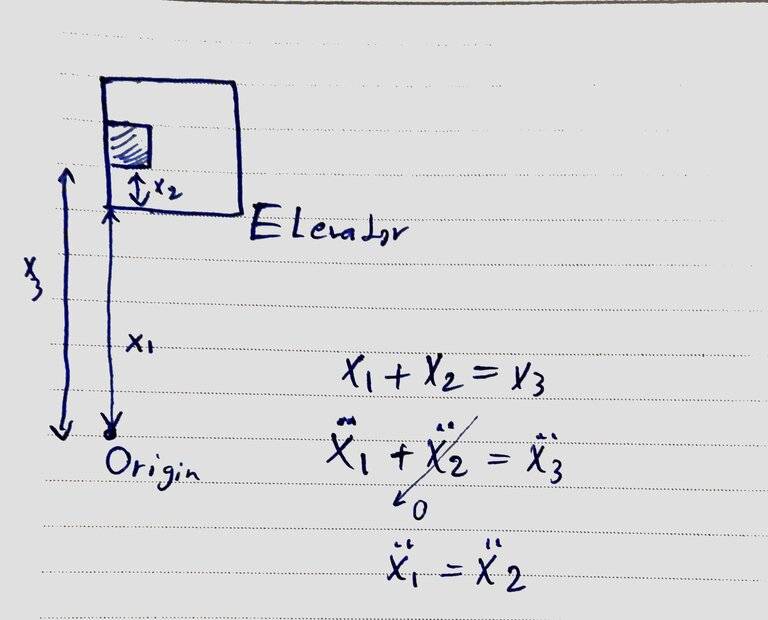 x₂
Elevador
x₃
x₁
Origin
x₁ + x₂ = x₃
ẍ₁ + ẍ₂ = ẍ₃
0
ẍ₁ = ẍ₂